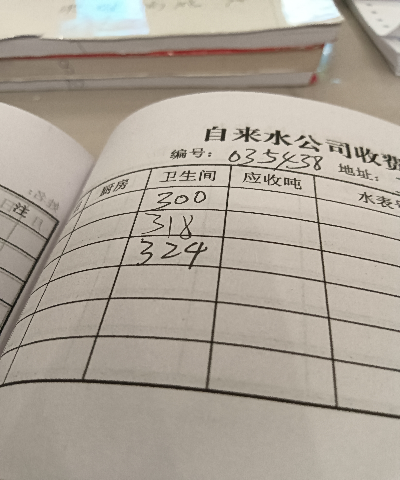 自来水公司收费
编号：035438 地址：
厨房 卫生间 应收吨 水表
300
318
324
注